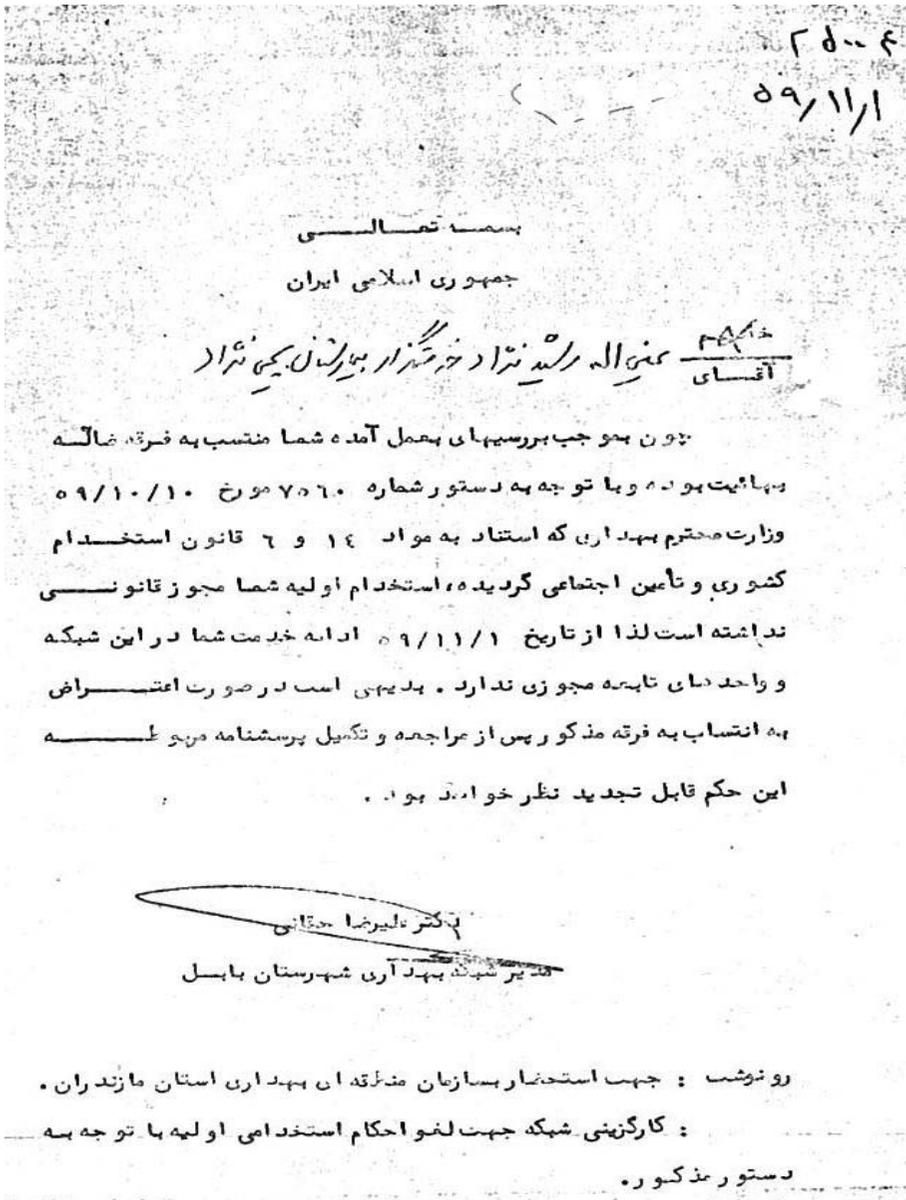 ۲۵۰۰۴
۵۹/۱۱/۱
بسمه تعالی
جمهوری اسلامی ایران
خانم
آقای رشید نژاد خدمتگزار بیمارستان یحیی نژاد
چون بموجب بررسیهای بعمل آمده شما منتسب به فرقه ضالّه
بهائیت بوده و با توجه به دستور شماره ۷۵۶۰ مورخ ۵۹/۱۰/۱۰
وزارت محترم بهداری که استناد به مواد ۱۴ و ۶ قانون استخدام
کشوری و تأمین اجتماعی گردیده، استخدام اولیه شما مجوز قانونی
نداشته است لذا از تاریخ ۵۹/۱۱/۱ ادامه خدمت شما در این شبکه
و واحدهای تابعه مجوزی ندارد . بدیهی است در صورت اعتراض
به انتساب به فرقه مذکور پس از مراجعه و تکمیل پرسشنامه مربوطه
این حکم قابل تجدید نظر خواهد بود .
دکتر علیرضا حقانی
مدیر شبکه بهداری شهرستان بابل
رونوشت : جهت استحضار بسازمان منطقه ای بهداری استان مازندران .
: کارگزینی شبکه جهت لغو احکام استخدامی اولیه با توجه به
دستور مذکور.